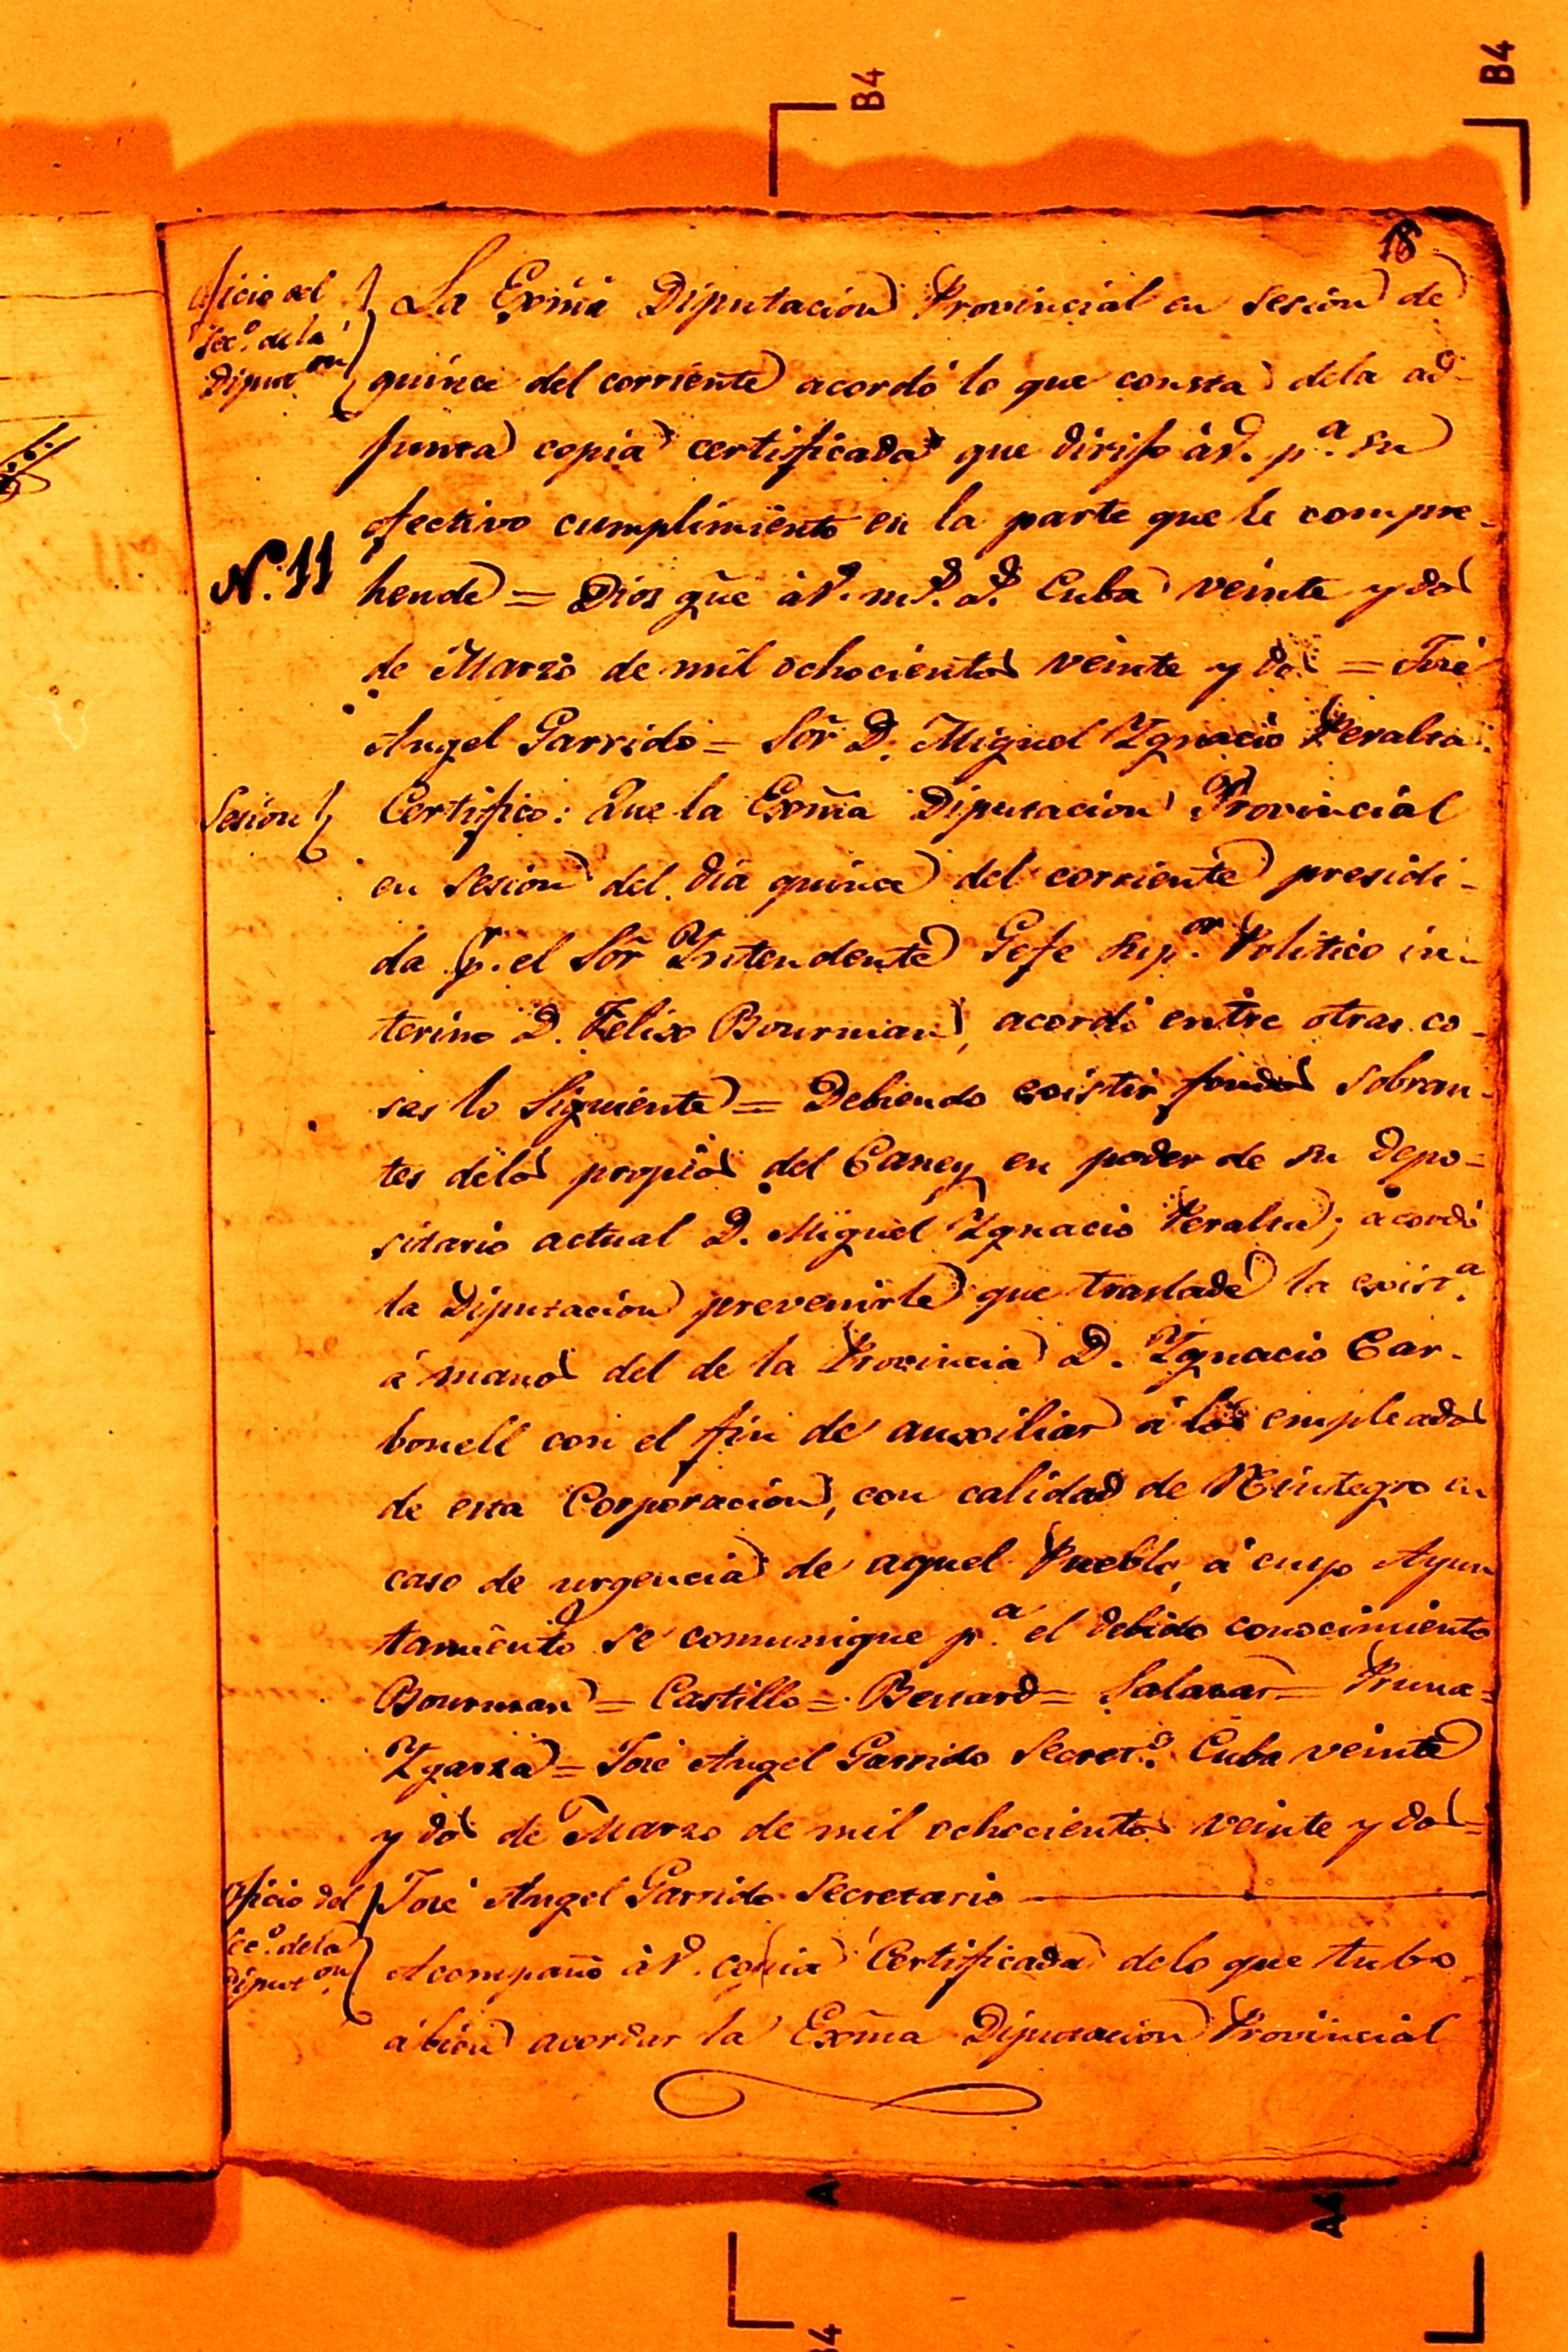 B4
B4
18
Oficio del
Sec.º de la
Diput.on
La Exma Diputacion Provincial en sesion de
quince del corriente acordó lo que consta dela ad-
junta copia certificada que dirijo á V. p.a su
efectivo cumplimiento en la parte que le compre-
N. 11
hende = Dios gue á V. m.s a.s Cuba veinte y dos
de Marzo de mil ochocientos veinte y dos = José
Angel Garrido = Sõr D. Miguel Ygnacio Peralta.
Sesion
Certifico: Que la Exma Diputacion Provincial
en sesion del dia quince del corriente presidi-
da p.r el Sõr Yntendente Gefe Sup.or Politico in-
terino D. Felix Bourman, acordó entre otras co-
sas lo Siguiente = Debiendo existir fondos sobran-
tes delos propios del Caney en poder de su depo-
sitario actual D. Miguel Ygnacio Peralta; acordó
la Diputacion prevenirle que traslade la exist.a
á manos del de la Provincia D. Ygnacio Car-
bonell con el fin de auxiliar á los empleados
de esta Corporacion, con calidad de Reintegro en
caso de urgencia de aquel Pueblo, á cuyo Ayun
tamiento se comunique p.a el debido conocimiento
Bourman = Castillo = Bernard = Salazar = Pruna =
Ygarza = José Angel Garrido Secret.º Cuba veinte
y dos de Marzo de mil ochocientos veinte y dos =
José Angel Garrido Secretario
Oficio del
Sec.º dela
Diput.on
Acompaño á V. copia Certificada delo que tubo
á bien acordar la Exma Diputacion Provincial
A
A4